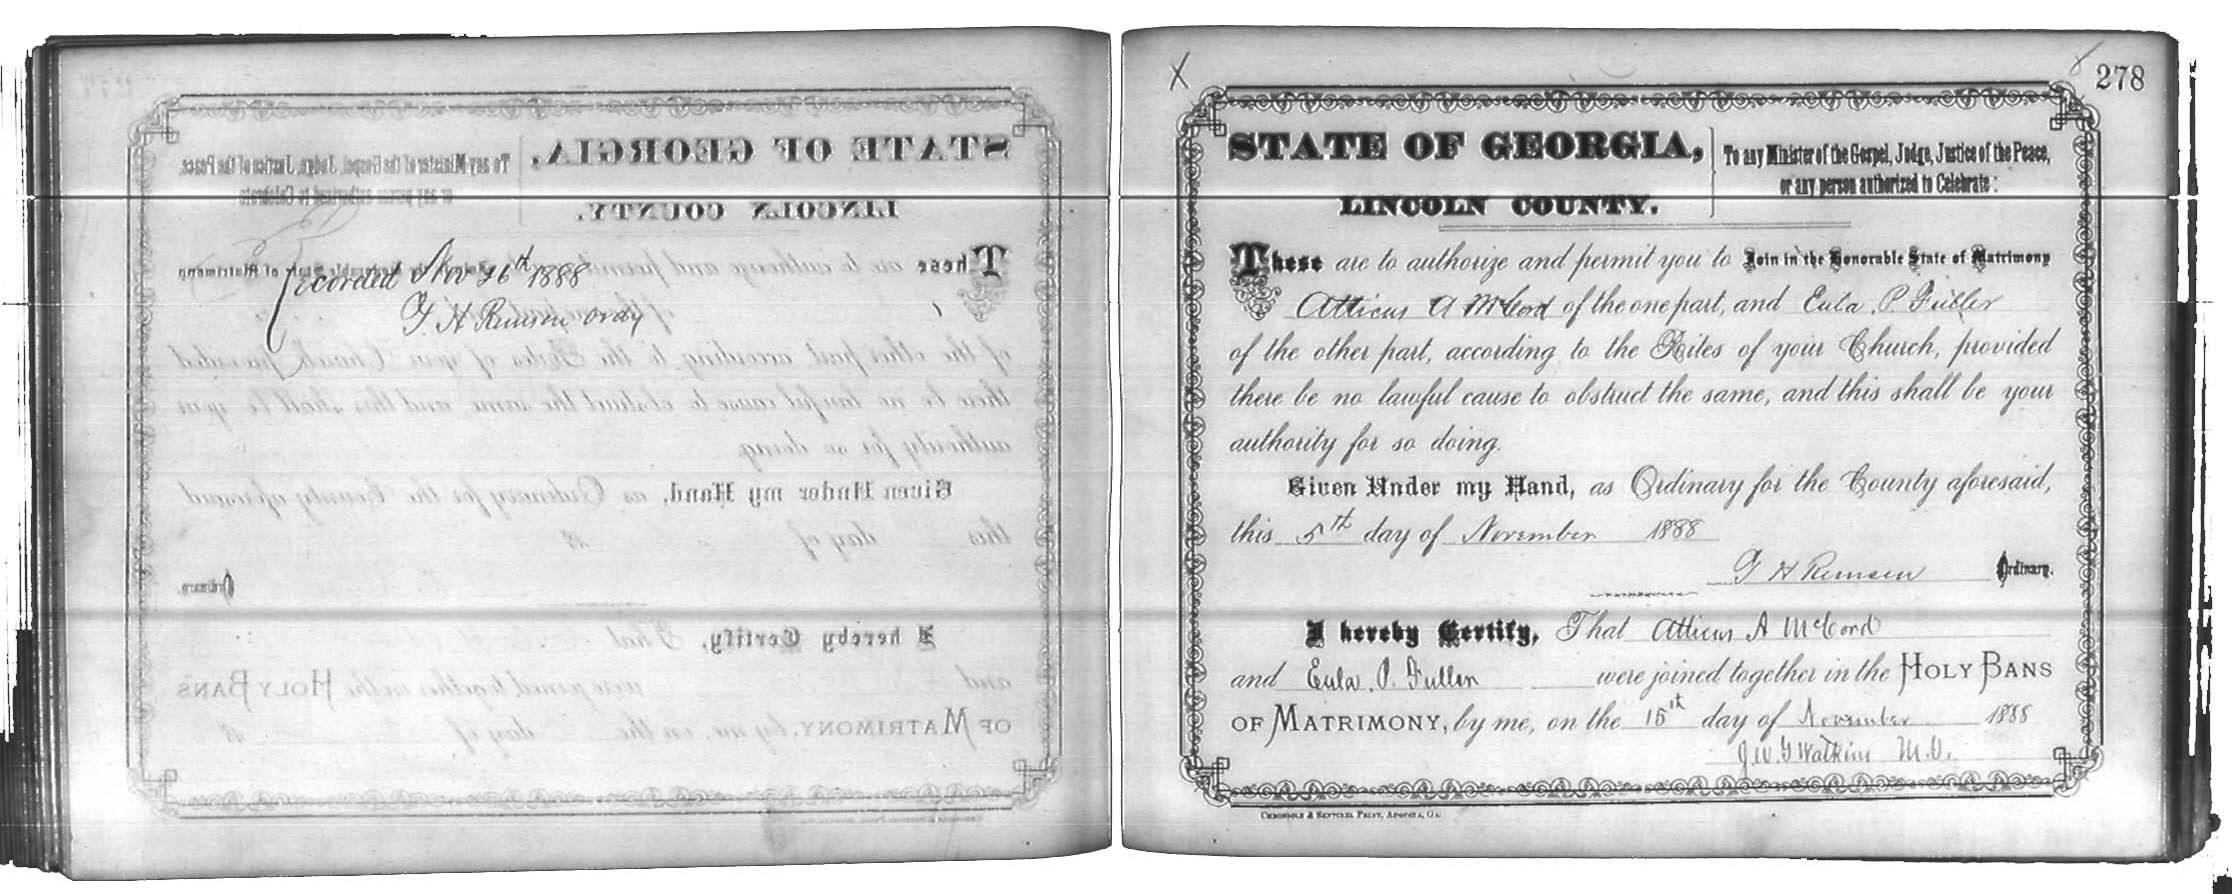 Recorded Nov 26th 1888
T. H. Remsen ordy
X
278
STATE OF GEORGIA,
LINCOLN COUNTY.
To any Minister of the Gospel, Judge, Justice of the Peace,
or any person authorized to Celebrate:
These are to authorize and permit you to Join in the Honorable State of Matrimony
Atticus A McCord of the one part, and Eula. P. Fuller
of the other part, according to the Rites of your Church, provided
there be no lawful cause to obstruct the same, and this shall be your
authority for so doing.
Given Under my Hand, as Ordinary for the County aforesaid,
this 5th day of November 1888
T H Remsen Ordinary.
I hereby Certify, That Atticus A McCord
and Eula. P. Fuller were joined together in the HOLY BANS
OF MATRIMONY, by me, on the 15th day of November 1888
J. W. G Watkins M. G.
CHRONICLE & SENTINEL PRINT, AUGUSTA, GA.